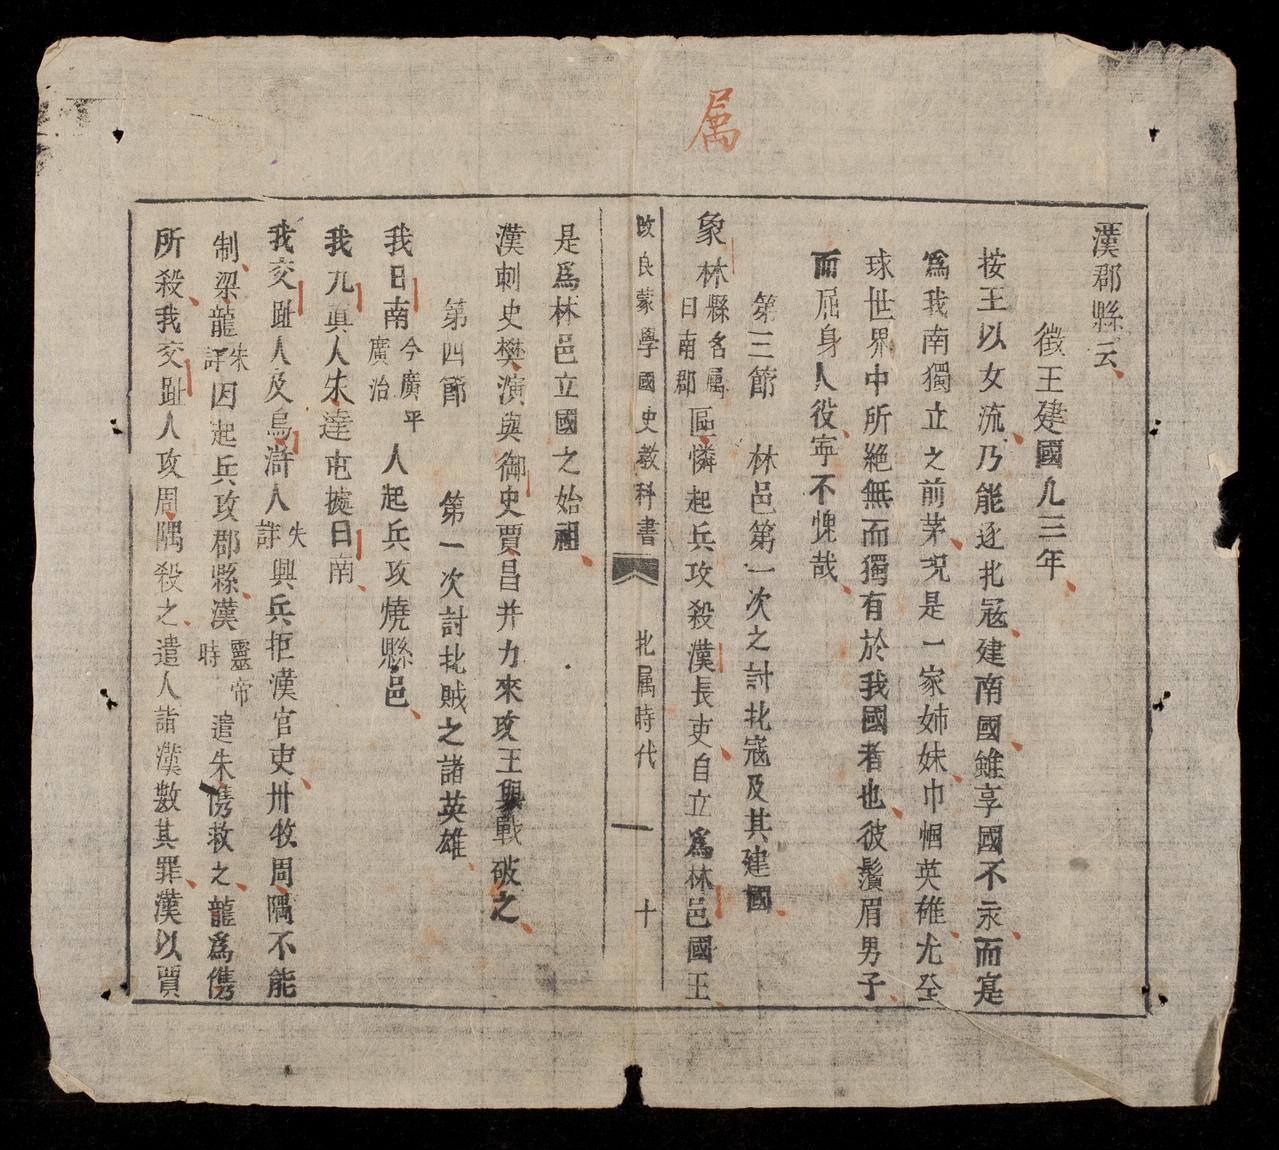 属
漢郡縣云
徵王建國凡三年
按王以女流乃能逐北冦建南國雖享國不永而寔
爲我南獨立之前茅况是一家姉妹巾幗英雄尤全
球世界中所絶無而獨有於我國者也彼鬚眉男子
而屈身人役寕不愧哉
第三節 林邑第一次之討北寇及其建國
象林縣名属日南郡區憐起兵攻殺漢長吏自立爲林邑國王
改良蒙學國史教科書 北属時代 一 十
是爲林邑立國之始祖
漢刺史樊演與御史賈昌并力來攻王與戰破之
第四節 第一次討北賊之諸英雄
我日南今廣平廣治人起兵攻燒縣邑
我九真人朱達屯據日南
我交趾人及烏滸人失詳興兵拒漢官吏卅牧周隅不能
制梁龍失詳因起兵攻郡縣漢靈帝時遣朱儁救之龍爲儁
所殺我交趾人攻周隅殺之遣人諸漢數其罪漢以賈